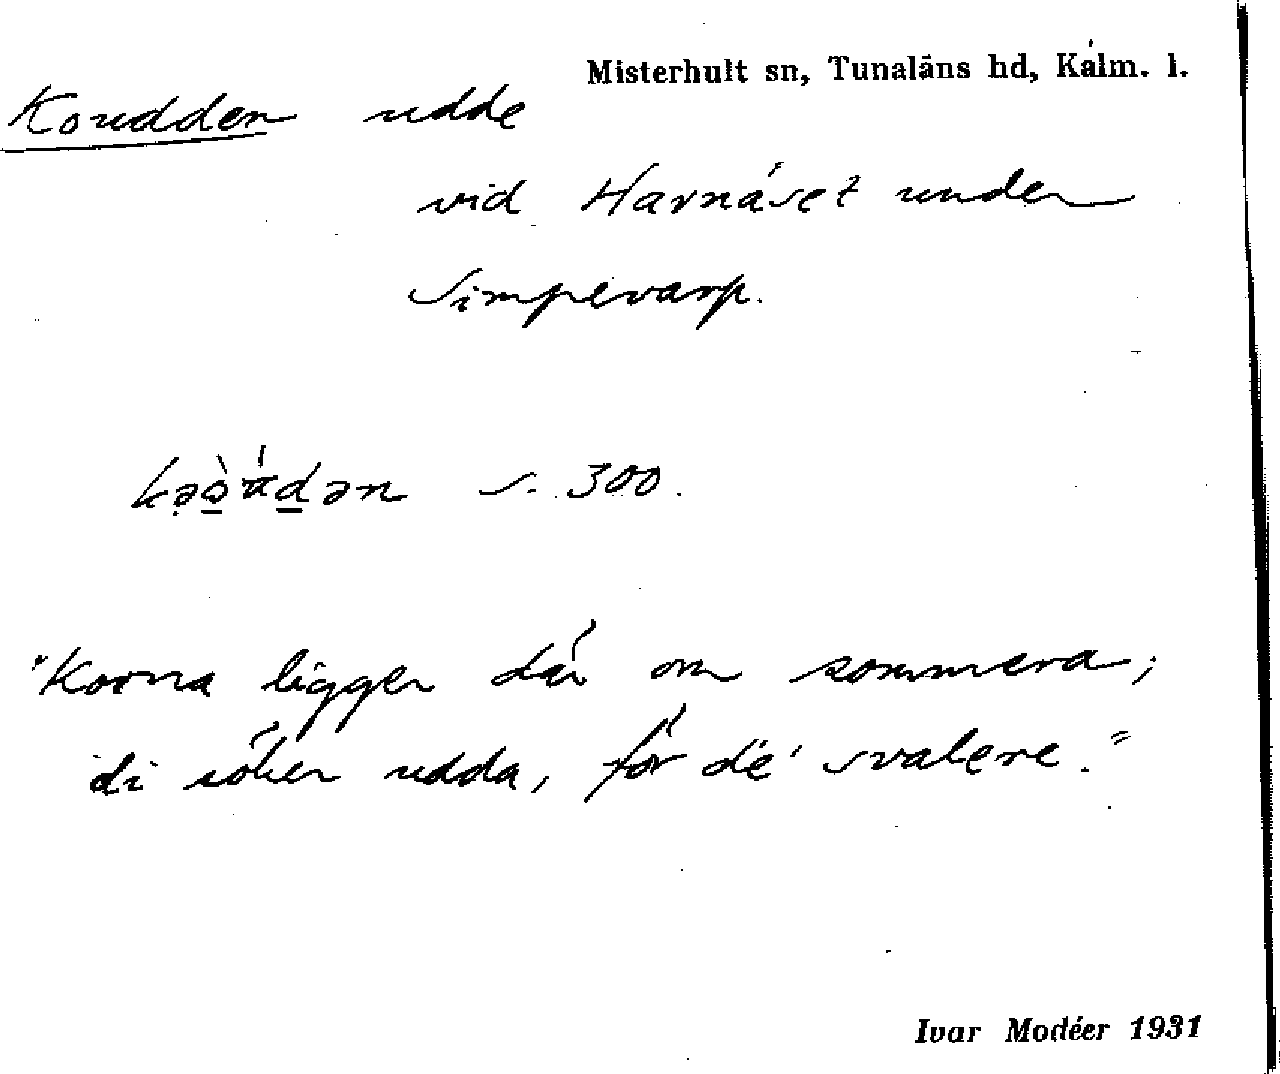 Misterhult sn, Tunaläns hd, Kalm. l.
Koudden udde
vid Harnäset under
Simpevarp.
s. 300.
"Korna ligger där om sommera;
di söker udda, för dë' svalere."
Ivar Modéer 1931